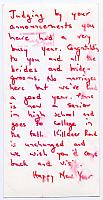 Judging by your
announcements you
have had a very
busy year. Congrats
to you and all the
brides and bride-
grooms. No marriages
here but we've had
a good year. Anne
is now a senior
in high school and
goes to College in
the fall. Killdeer Road
is unchanged and
we wish you'd come
back and visit.
Happy New Year